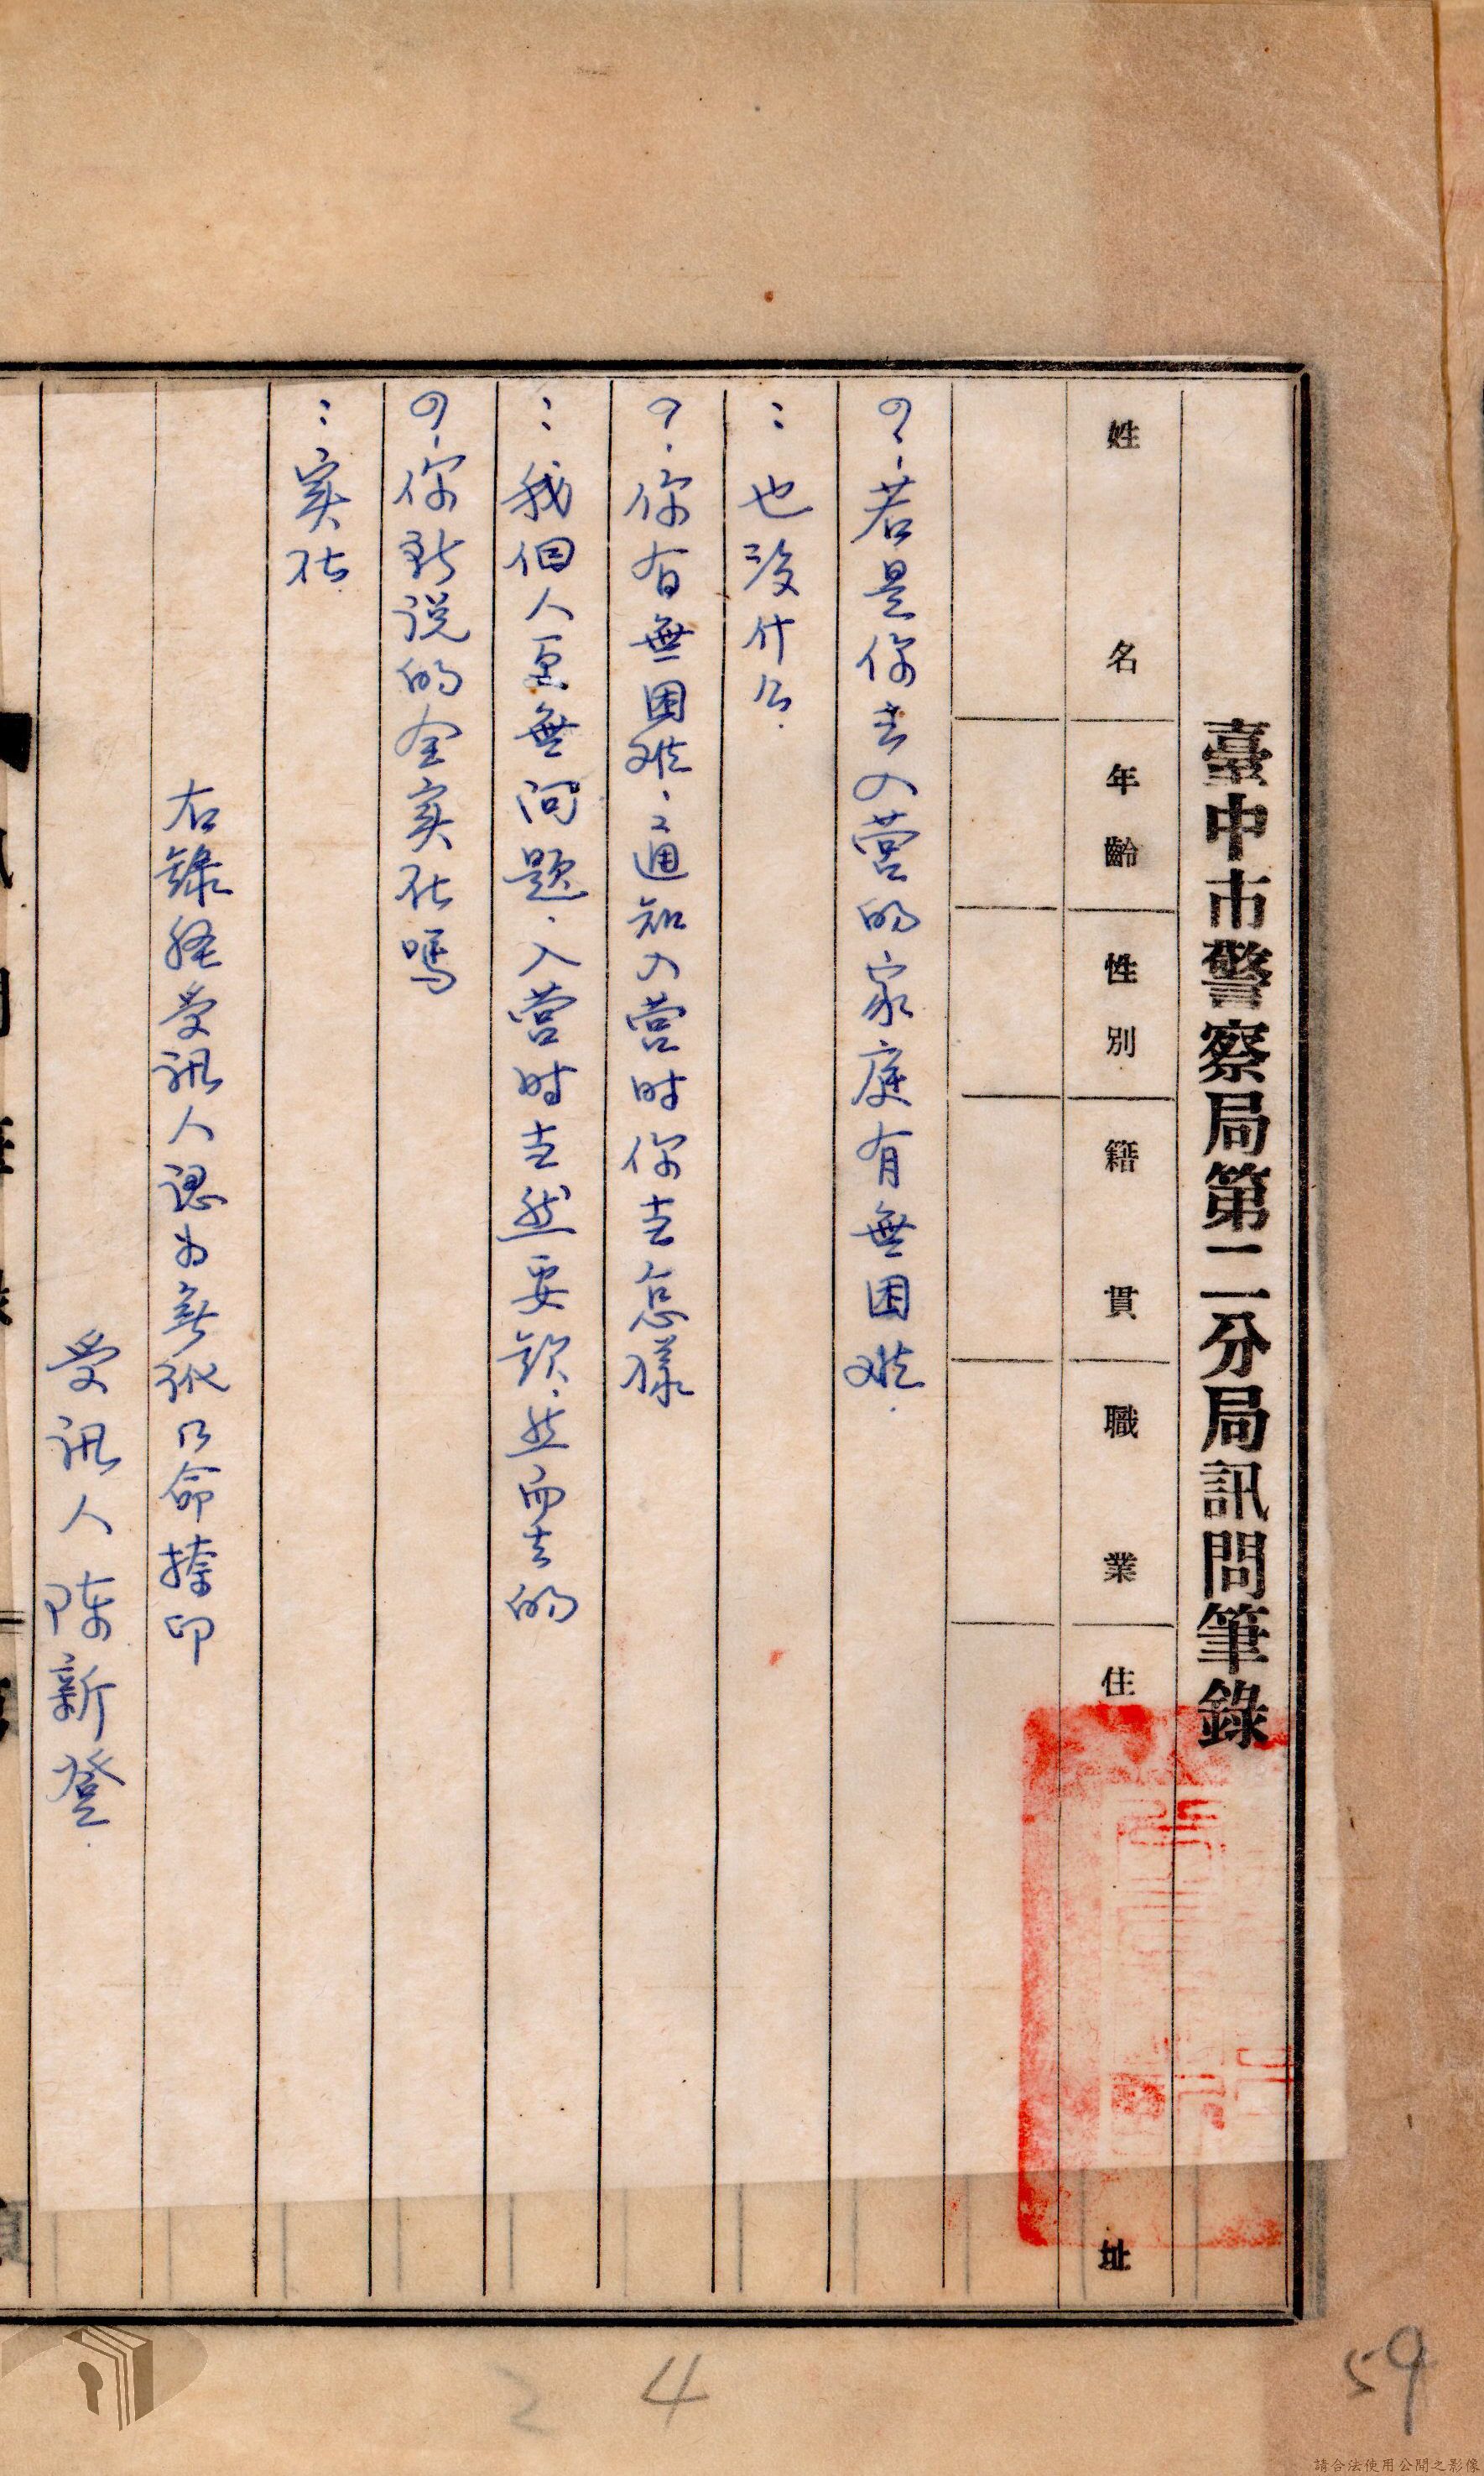 臺中市警察局第二分局訊問筆錄
姓名 年齡 性別 籍貫 職業 住址
若是你去入營的家庭有無困难.
：也沒什么.
你有無困难.通知入營时你去怎樣
：我個人更無问題.入營时去然要欵.然而去的
你所说的全实在嗎
：实在.
右錄经受訊人認为無訛乃命捺印
受訊人陈新登.
2 4
59
請合法使用公開之影像